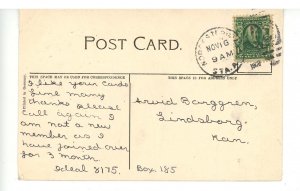 POST CARD.
NOV 16
9 AM
STA.
THIS SPACE MAY BE USED FOR CORRESPONDENCE
THIS SPACE IS FOR ADDRESS ONLY
I like your cards
fine many
thanks please
call again I
am not a new
member as I
have joined over
for 3 month
Ideal 8175.
David Banggren,
Lindsborg
Kan.
Box. 185